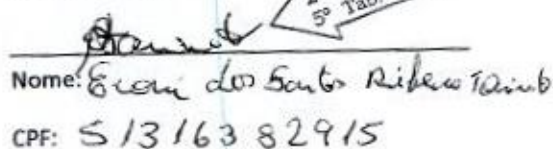 5º Tab
Nome: Econi dos Santos Ribeiro
CPF: 51316382915